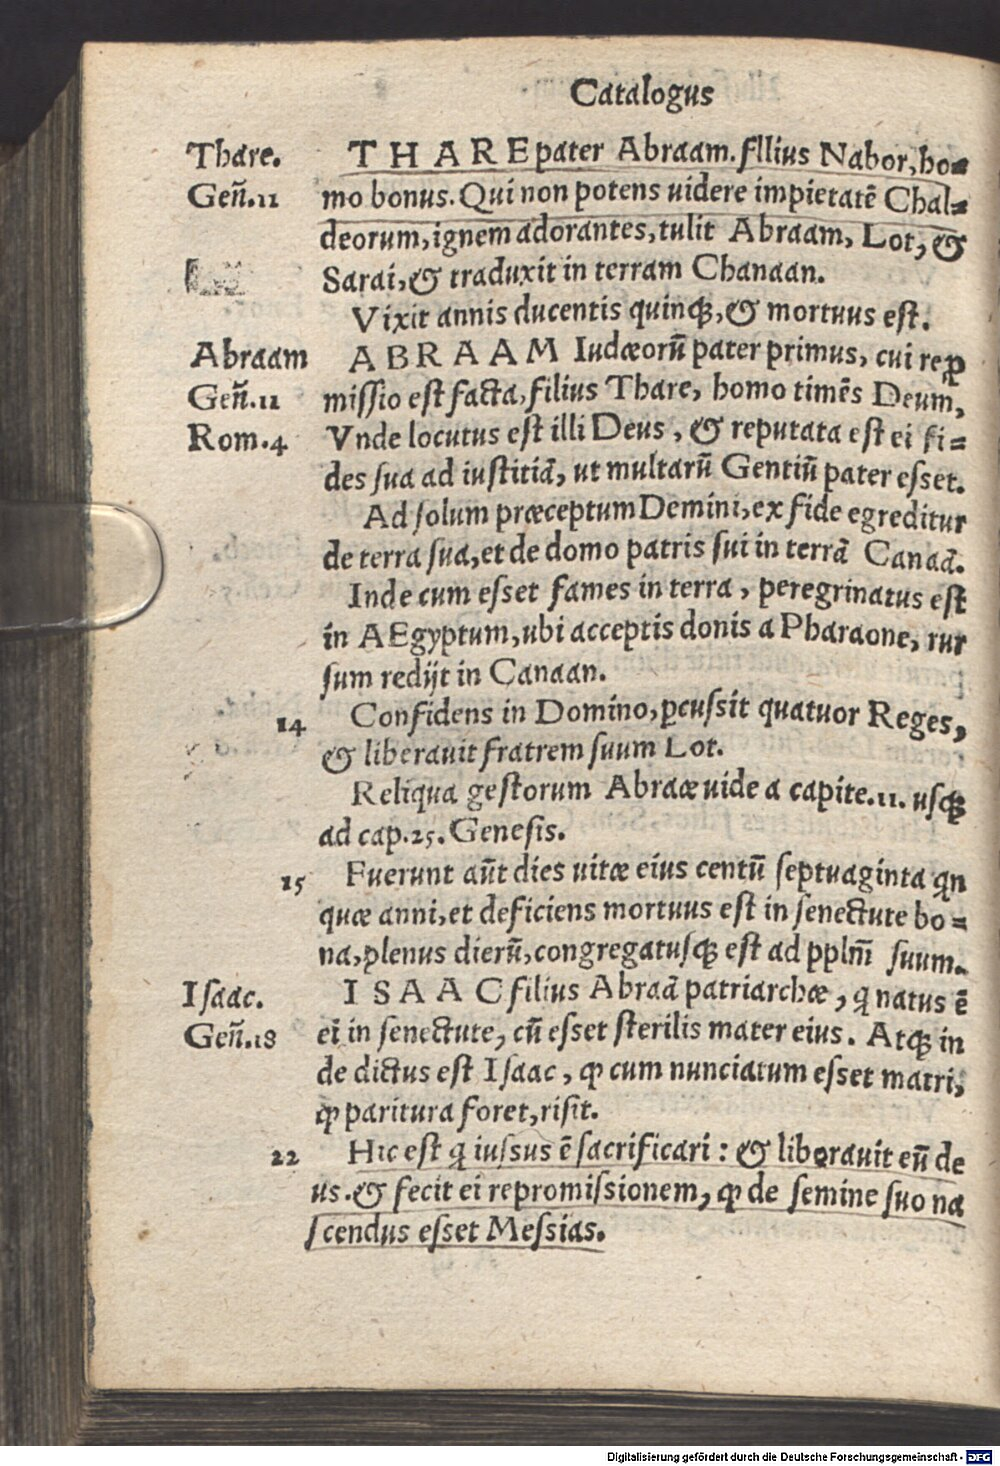 Catalogus
Thare.
Geñ.11
T H A R E pater Abraam. fIlius Nabor, ho=
mo bonus. Qui non potens uidere impietatẽ Chal=
deorum, ignem adorantes, tulit Abraam, Lot, &
Sarai, & traduxit in terram Chanaan.
Vixit annis ducentis quinqꝫ, & mortuus est.
Abraam
Geñ.11
Rom.4
A B R A A M Iudæorũ pater primus, cui reꝓ
missio est facta, filius Thare, homo timẽs Deum,
Vnde locutus est illi Deus, & reputata est ei fi=
des sua ad iustitiã, ut multarũ Gentiũ pater esset.
Ad solum præceptum Demini, ex fide egreditur
de terra sua, et de domo patris sui in terrã Canaã.
Inde cum esset fames in terra, peregrinatus est
in AEgyptum, ubi acceptis donis a Pharaone, rur
sum redijt in Canaan.
14
Confidens in Domino, ꝑcussit quatuor Reges,
& liberauit fratrem suum Lot.
Reliqua gestorum Abraæ uide a capite.11. usqꝫ
ad cap.25. Genesis.
15
Fuerunt aũt dies uitæ eius centũ septuaginta qn
quæ anni, et deficiens mortuus est in senectute bo=
na, plenus dierũ, congregatusqꝫ est ad pplm̃ suum.
Isaac.
Geñ.18
I S A A C filius Abraã patriarchæ, q natus ẽ
ei in senectute, cũ esset sterilis mater eius. Atqꝫ in
de dictus est Isaac, ꝙ cum nunciatum esset matri,
ꝙ paritura foret, risit.
22
Hic est q iussus ẽ sacrificari: & liberauit eũ de
us. & fecit ei repromissionem, ꝙ de semine suo na
scendus esset Messias.
Digitalisierung gefördert durch die Deutsche Forschungsgemeinschaft - DFG